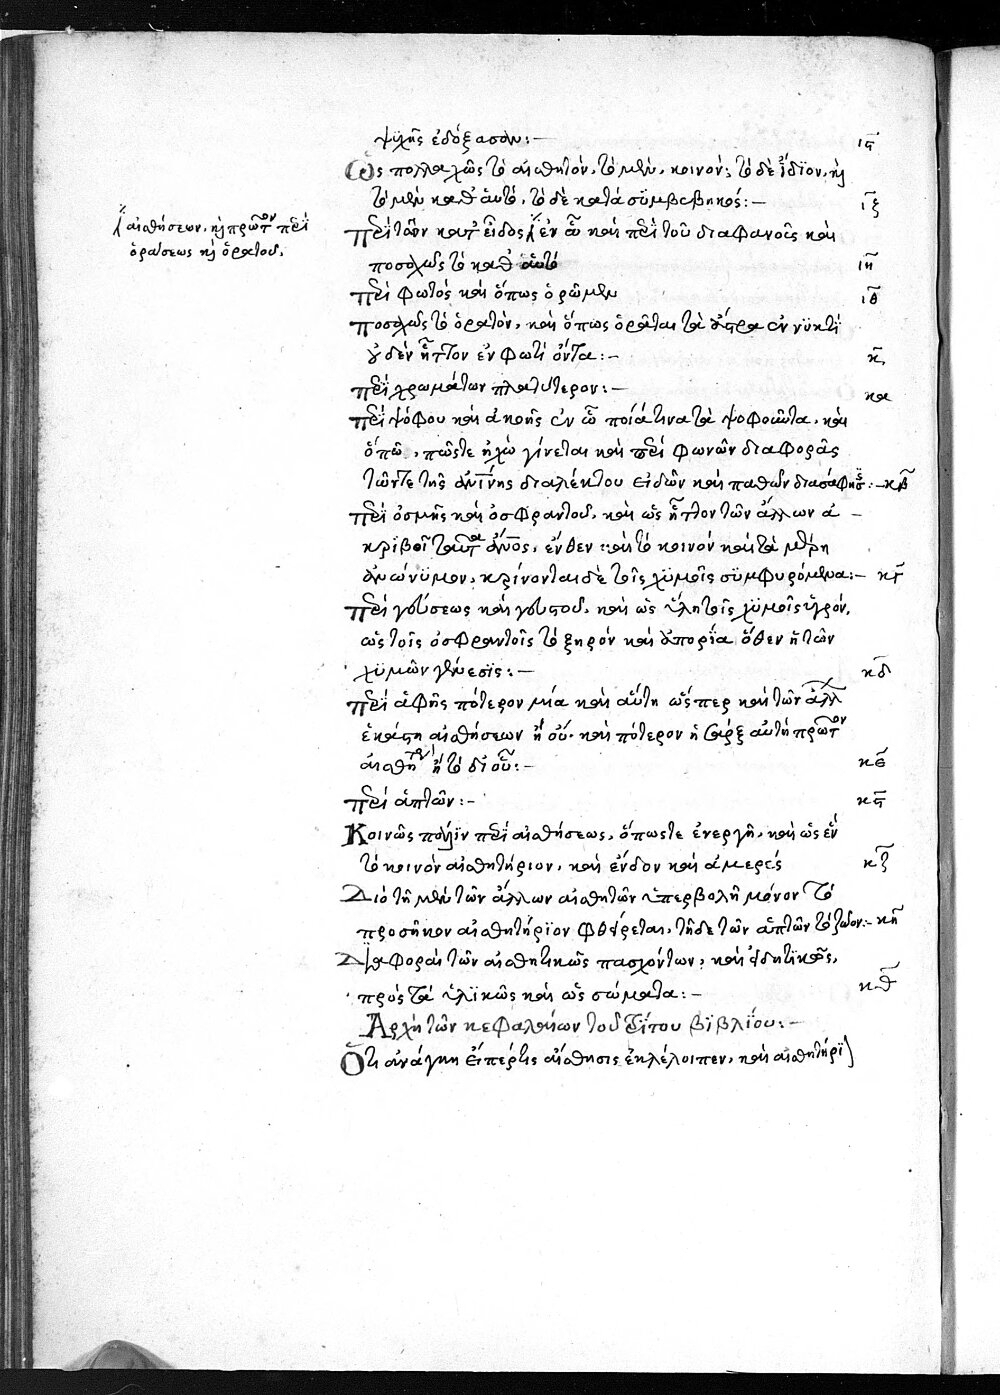 ψυχῆς ἐδόξασαν:— ιϛ
Ὡς πολλαχῶς τὸ αἰσθητὸν, τὸ μὲν, κοινὸν· τὸ δὲ ἴδϊον, κỳ
τὸ μὲν καθ' αὑτό, τὸ δὲ κατὰ συμβεβηκός:— ιζ
Περὶ τῶν κατ' εἶδος ἐν ᾧ καὶ περὶ τοῦ διαφανοῦς καὶ
αἰσθήσεων, κỳ πρῶτον περὶ
ὁράσεως κỳ ὁρατοῦ.
ποσαχῶς τὸ καθ' αὑτό ιη
Περὶ φωτὸς καὶ ὅπως ὁρῶμεν ιθ
Ποσαχῶς τὸ ὁρατὸν, καὶ ὅπως ὁρᾶται τὰ ἄστρα ἐν νυκτὶ
οὐδὲν ἧττον ἐν φωτὶ ὄντα:— κ
Περὶ χρωμάτων πλατύτερον:— κα
Περὶ ψόφου καὶ ἀκοῆς ἐν ᾧ ποῖά τινα τὰ ψοφοῦντα, καὶ
ὅπου, πῶς τε ἠχὼ γίνεται καὶ περὶ φωνῶν διαφορᾶς
τῶν τε τῆς ἀνίνης διαλέκτου εἰδῶν καὶ παθῶν διασάφησις:— κβ
Περὶ ὀσμῆς καὶ ὀσφραντοῦ, καὶ ὡς ἧττον τῶν ἄλλων ἀ-
κριβοῖ ταύτα ἄνος, ἔνθεν καὶ τὸ κοινὸν καὶ τὰ μέρη
ἀνώνυμον, κρίνονται δὲ τοῖς χυμοῖς συμφυρόμενα:— κγ
Περὶ γεύσεως καὶ γευστοῦ, καὶ ὡς ὕλη τοῖς χυμοῖς ὑγρόν,
ὡς τοῖς ὀσφραντοῖς τὸ ξηρὸν καὶ ἀπορία ὅθεν ἡ τῶν
χυμῶν γένεσϊς:— κδ
Περὶ ἁφῆς πότερον μία καὶ αὕτη ὥσπερ καὶ τῶν ἄλλ
ἑκάστη αἰσθήσεων ἢ οὔ· καὶ πότερον ἡ σὰρξ αὐτὴ πρῶτον
αἰσθητήριον ἢ τὸ δι' οὗ:— κε
Περὶ ἁπτῶν:— κϛ
Κοινῶς πάλϊν περὶ αἰσθήσεως, ὅπως τε ἐνεργῆ, καὶ ὡς ἓν
τὸ κοινὸν αἰσθητήριον, καὶ ἔνδον καὶ ἀμερές κζ
Διὸ τῆ μὲν τῶν ἄλλων αἰσθητῶν ὑπερβολῆ μόνον τὸ
προσῆκον αἰσθητήρϊον φθείρεται, τῆ δε τῶν ἁπτῶν τὸ ζῶον:— κη
Διαφοραὶ τῶν αἰσθητικῶς πασχόντων, καὶ εἰδητϊκῶς,
πρὸς τὰ ὑλϊκῶς καὶ ὡς σώματα:— κθ
Ἀρχὴ τῶν κεφαλαίων τοῦ τρίτου βϊβλΐου:—
Ὅτι ἀνάγκη εἴπερ τις αἴσθησις ἐκλέλοιπεν, καὶ αἰσθητήρϊ